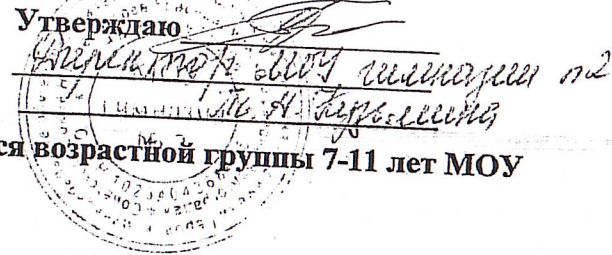 Утверждаю
Директор МОУ гимназии №2
Т. Н. Кузьмина
ся возрастной группы 7-11 лет МОУ